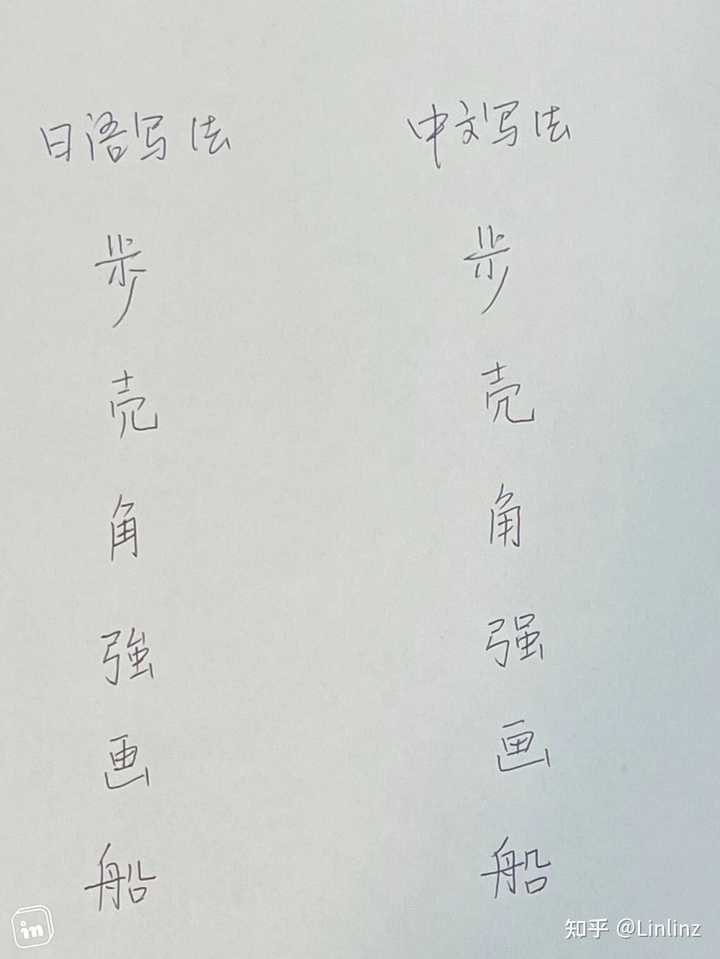 日语写法 中文写法
歩 步
売 壳
角 角
強 强
画 画
船 船
in
知乎 @Linlinz